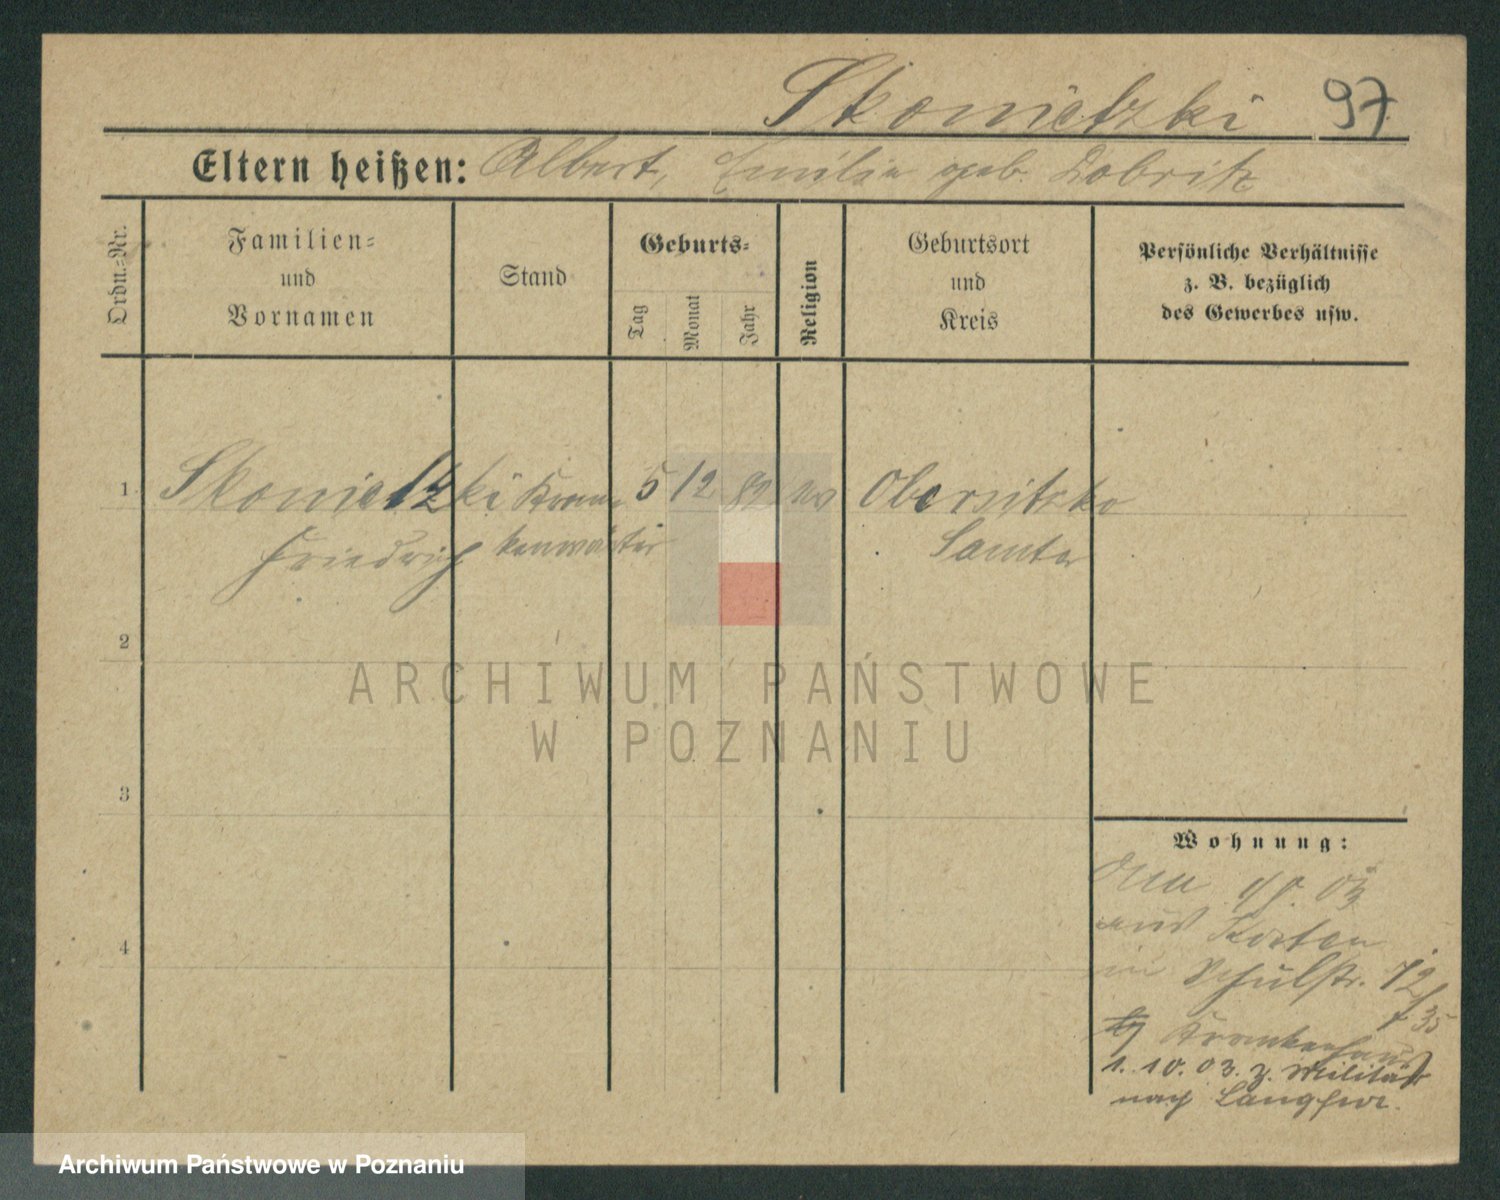 Skonietzki 97
Eltern heißen: Albert, Emilie geb. Dobrik
Ordn.-Nr.
Familien-
und
Vornamen
Stand
Geburts-
Tag
Monat
Jahr
Religion
Geburtsort
und
Kreis
Persönliche Verhältnisse
z. B. bezüglich
des Gewerbes usw.
1 Skonietzki Kran- 5 12 82 ev Obersitzko
Friedrich kenwärter Samter
2
ARCHIWUM PAŃSTWOWE
W POZNANIU
3
Wohnung:
03
aus Kosten
4
in Schulstr. 12/
35
Krankenhaus
1. 10. 03. z. Militär
nach
Archiwum Państwowe w Poznaniu